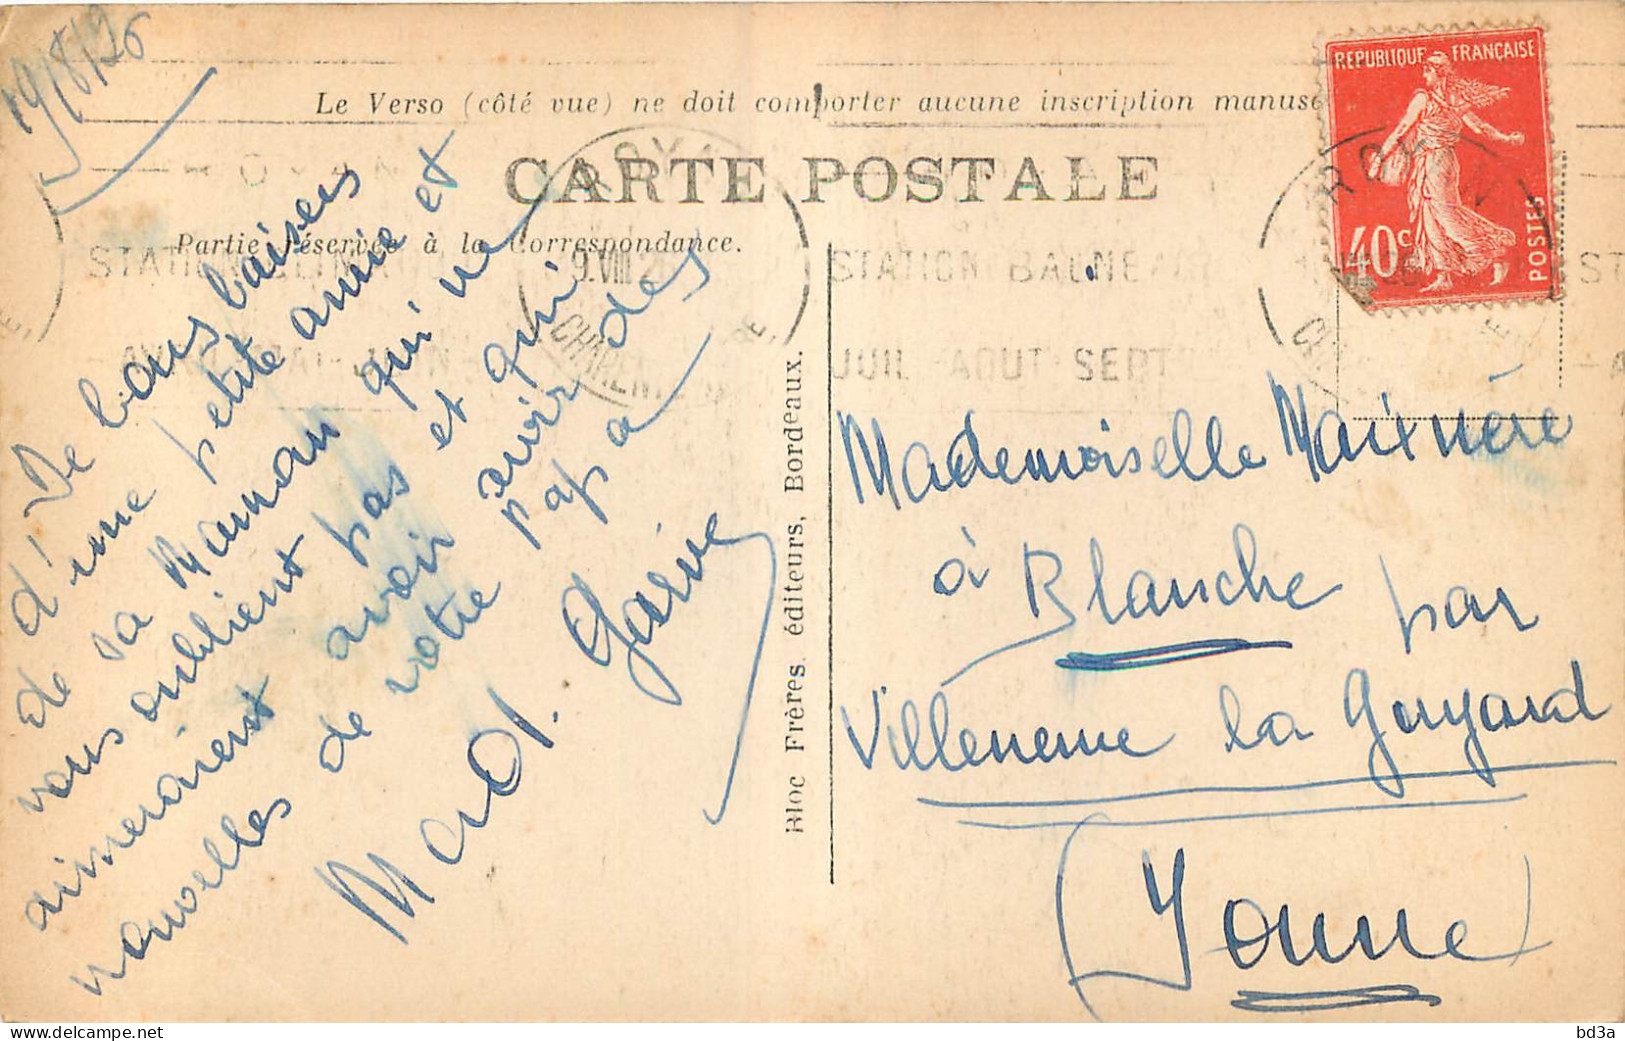 19/8/26
Le Verso (côté vue) ne doit comporter aucune inscription manus
CARTE POSTALE
Partie réservée à la Correspondance.
REPUBLIQUE FRANÇAISE
40c
POSTES
ROYAN
9.VIII 26
STATION BALNEAIRE
JUIL-AOUT-SEPT
De bons baisers
d'une petite amie et
de sa Maman qui ne
vous oublient pas et qui
aimeraient avoir avoir des
nouvelles de votre papa
Mad. Garive
Bloc Frères, éditeurs, Bordeaux.
Mademoiselle
à Blanche par
Villeneuve la Gouyard
(Yonne)
delcampe.net
bd3a